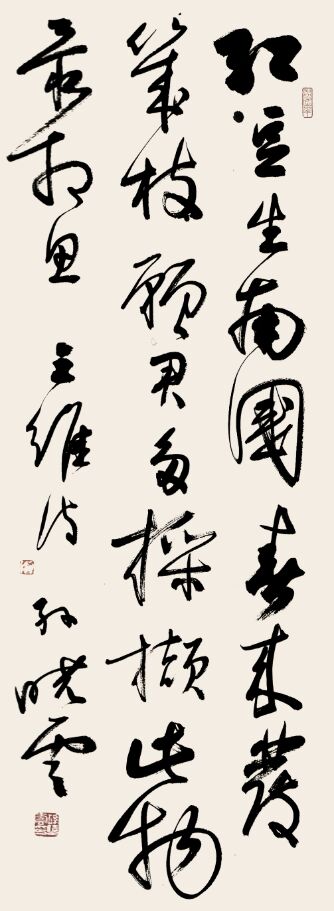 紅豆生南國春來發
幾枝願君多採擷此物
最相思 王維詩 孫曉雲